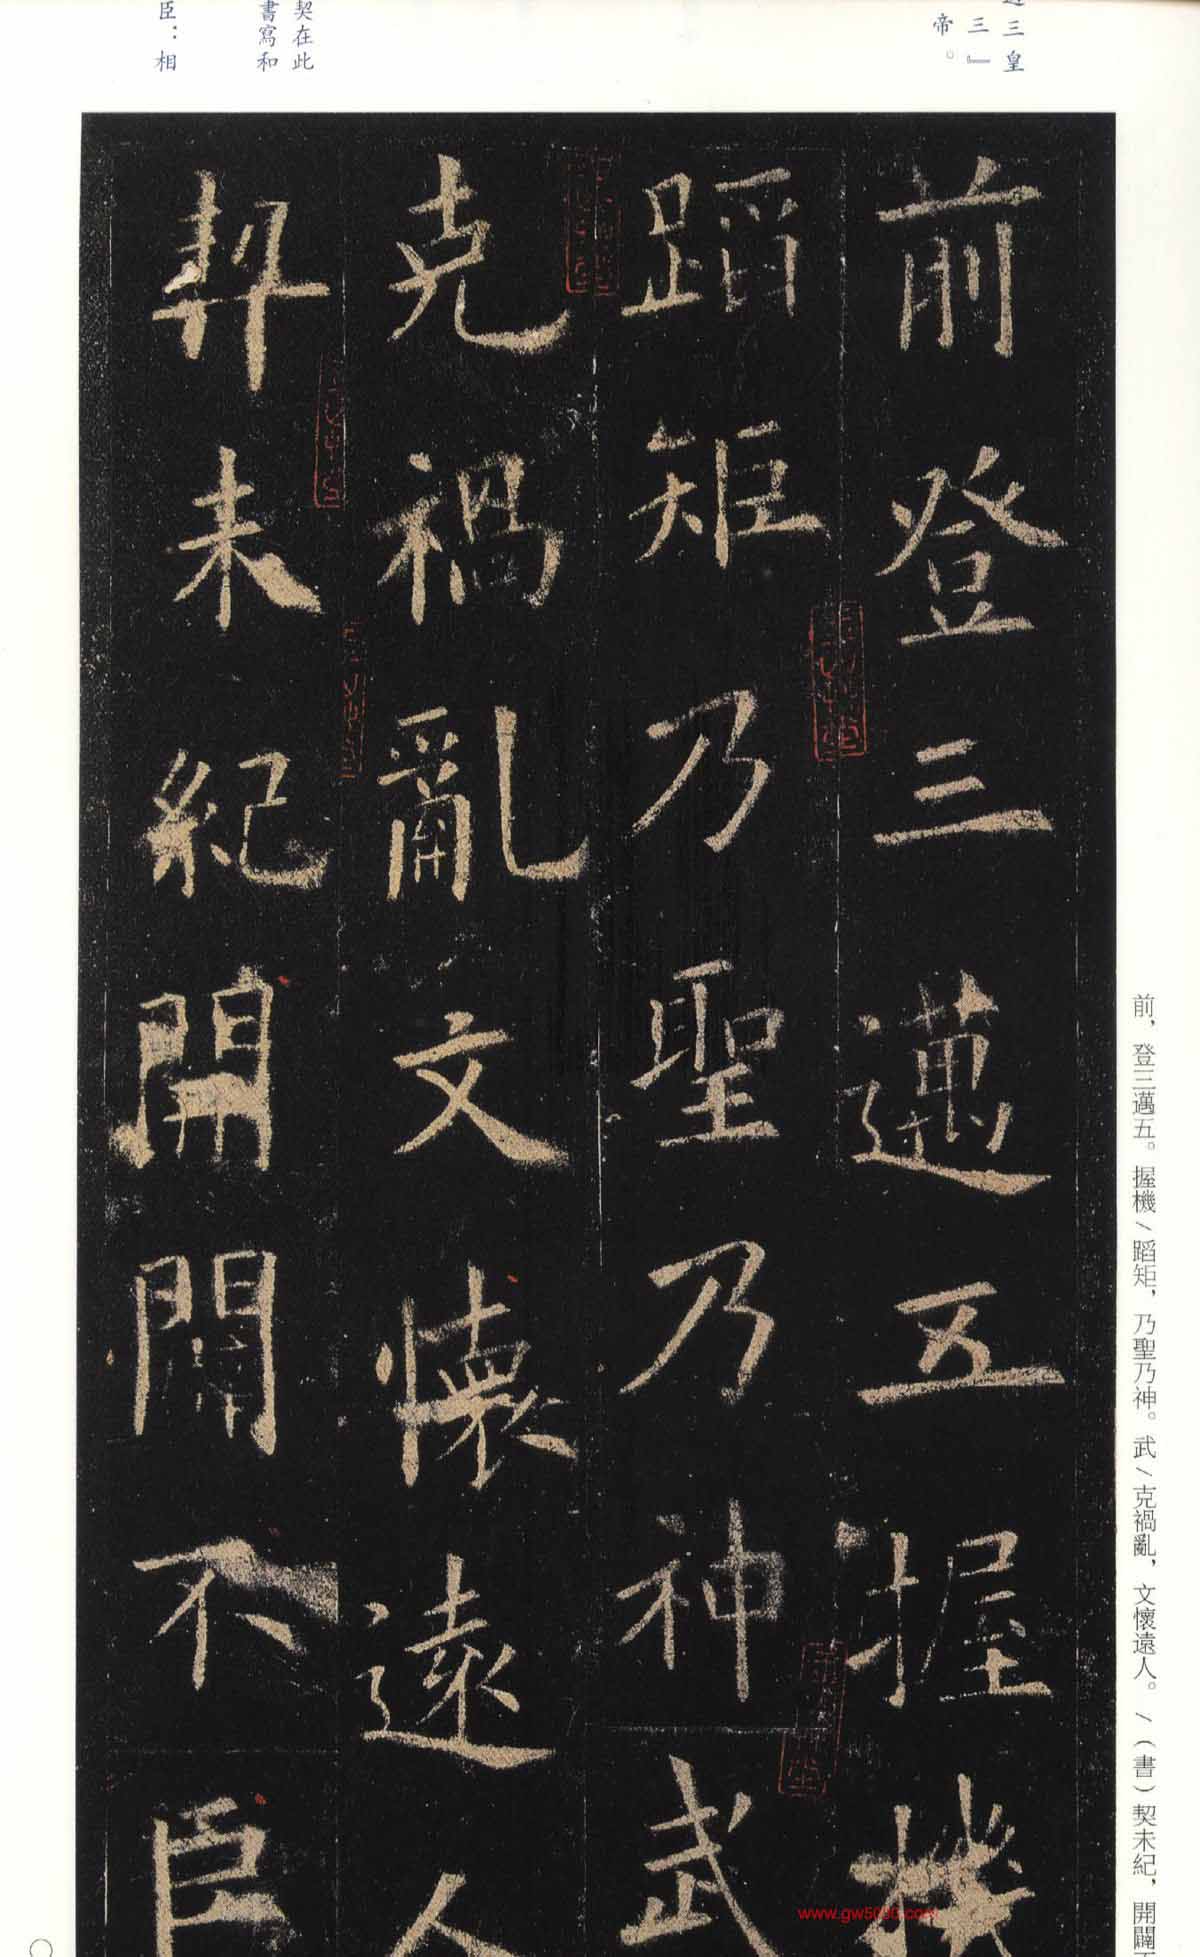 三皇
三』
帝。
契在此
書寫和
臣：相
前登三邁五握機
蹈矩乃聖乃神武
克禍亂文懷遠人
契未紀開闢不臣
前，登三邁五。握機/蹈矩，乃聖乃神。武/克禍亂，文懷遠人。/（書）契未紀，開闢
www.gw5000.com